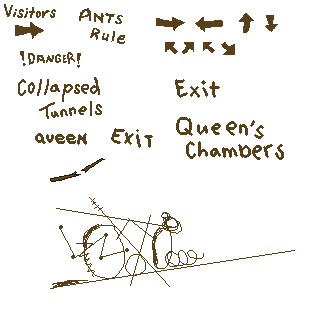 Visitors
ANTS
Rule
!DANGER!
Collapsed
Tunnels
Exit
QUEEN
EXIT
Queen's
Chambers